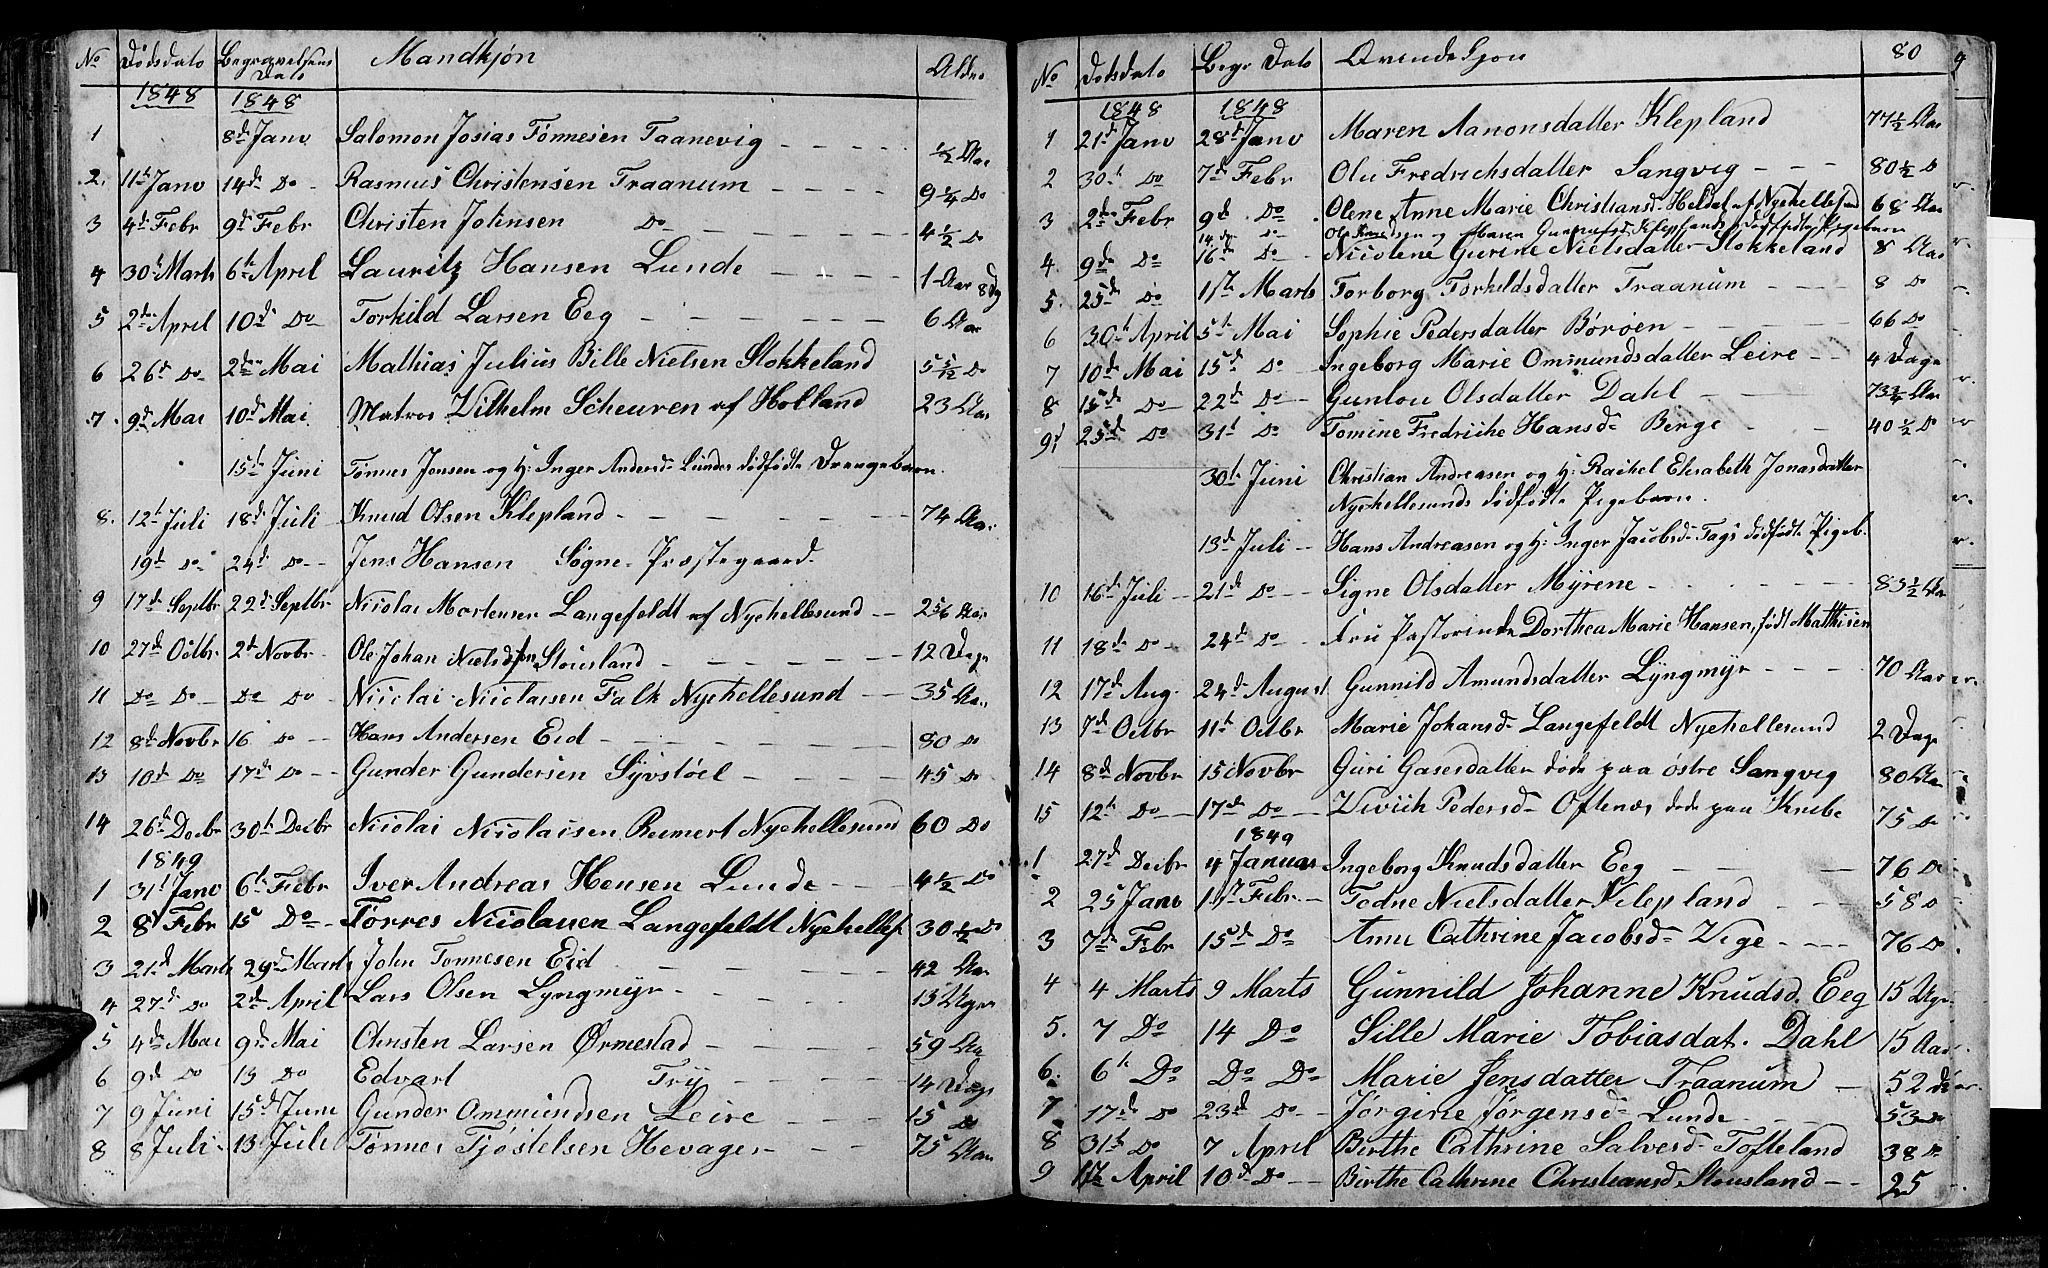 No Dødsdato Begravelsens Dato Mandkjøn Alder
1848 1848
1 8d Janv Salomon Josias Tønnesen Taanevig - - - - - ½ Aar
2. 11t Janv 14d Do - Rasmus Christensen Traanum - - - - 9¼ Do
3 4d Febr 9d Febr Christen Johnsen Do - - - 4½ Do
4 30t Marts 6t April Lauritz Hansen Lunde - - - - 1 Aar 8 Dg
5 2den April 10d Do Torkild Larsen Eeg - - - - - - 6 Aar
6 26d Do 2den Mai Mathias Julius Bille Nielsen Stokkeland 5 5/12 Do
7. 9d Mai 10d Mai Matros Vilhelm Scheuren af Holland 23 Aar
15d Juni Tønnes Jensen og H: Inger Andersd- Lundes dødfødte Drengebarn.
8. 12t Juli 18d Juli Knud Olsen Klepland - - - - - - 74 Aar
19d Do 24d Do - - Jens Hansen Sogne-Præstegaard.
9 17d Septbr 22d Septbr Nicolai Mortensen Langefeldt af Nyehellesund - - Aar
10 27d Octbr 2d Novbr Ole Johan Nielssen Stousland - - - - - - 12 Dage
11 Do Do Do Do Nicolai Nicolaisen Falk Nyehellesund - - 35 Aar
12 8d Novbr 16 Do - Hans Andersen Eid - - - - - - 80 Do
13 10d Do 17d Do - - Gunder Gundersen Syvstoel - - - - 45 Do
14 26d Decbr 30t Decbr Nicolai Nicolaisen Reinert Nyehellesund 60 Do
1849
1 31t Janv 6t Febr Iver Andreas Hensen Lunde - - - 4½ Do
2 8d Febr 15 Do - Tørres Nicolaisen Langefeldt Nyehelles 30½ Do
3 21d Marts 29d Marts John Tønnesen Eid - - - - - - 42 Aar
4 27d Do 2den April Lars Olsen Lyngmyr - - - - - - 13 Uger
5 4d Mai 9d Mai Christen Larsen Ørmestad - - - - - 59 Aar
6 9d Do 13 Do Edvart Try - - - - 14 Dage
7 9 Juni 15d Juni Gunder Ommundsen Leire - - - - 15 Do
8 8 Juli - 13 Juli Tønnes Tjøstelsen Hevager - - - - 75 Aar
No Dødsdato Begr Dato Qvindekjøn 80
1848 1848
1 21d Janv 28d Janv Maren Aanonsdatter Klepland 77½ Aar
2 30t Do 7d Febr Olu Fredrichsdatter Sangvig - - - 80½ Do
3 2den Febr 9d Do Olene Anne Marie Christiansd- Heldal af Nyehellesund 68 Aar
14 Do Ole Knudsen og Maren Gunnufsd- Kleplands dødfødte Pigebarn
4. 9d Do 16d Do - Nicolene Gurine Nielsdatter Stokkeland 8 Aar
5. 25d Do 11t Marts Torborg Torkildsdatter Traanum - - - - 8 Do
6 30t April 5t Mai Sophie Pedersdatter Børøen - - - - - 66 Do
7 10d Mai 15d Do - Ingeborg Marie Ommundsdatter Leire - - 4 Dage
8 15d Do - 22d Do - Gunlou Olsdatter Dahl - - - - 73¾ Aar
9 25d Do 31t Do Tomine Fredrikke Hansd- Berge - - - 40½ Do
30t Juni Christian Andreasen og H: Rachel Elisabeth Jonasdatter
Nyehellesunds dødfødte Pigebarn.
13d Juli - Hans Andreasen og H: Inger Jacobsd- Tags dødfødte Pigeb.
10 16d Juli - 21d Do - Signe Olsdatter Myrene - - - - - 83½ Aar
11 18d Do - 24d Do - Fru Pastorinde Dorthea Marie Hansen, født Mathisen
12 17d Aug. 24d August Gunnild Amundsdatter Lyngmyr - - - - 70 Aar
13 7d Octbr 11t Octbr Marie Johansd- Langefeldt Nyehellesund 2 Dage
14 8d Novbr 15 Novbr Guri Gasesdatter døde paa østre Sangvig 80 Aar
15 12t Do - 17d Do - - Zivich Pedersd- Oftenes, døde paa Knibe 75 Do
1849
1 27d Decbr 4 Januar Ingeborg Knudsdatter Eeg - - - - 76 Do
2 25 Janv Febr. - Tedne Nielsdatter Klepland - - - 58 Do
3 7d Febr 15d Do Anne Cathrine Jacobsd- Vige - - - - 76 Do
4 4 Marts 9 Marts Gunnild Johanne Knudsd. Eeg 15 Uger
5. 7 Do 14 Do Sille Marie Tobiasdat. Dahl 15 Aar
6. 6t Do Do Do Marie Jensdatter Traanum - 52 do
7 17d Do 23d Do - Jørgine Jørgensd- Lunde - - - - 53 do
8 31t Do 7 April Birthe Cathrine Salvesd- Tofteland 38 Do
9 April 10d Do - - Birthe Cathrine Christiansd Stousland - - 25